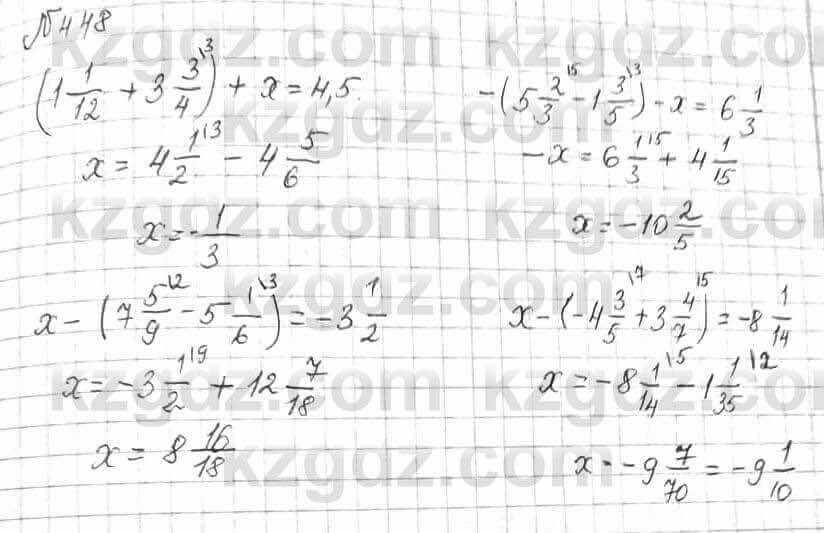 №448
(1 1/12 + 3 3/4\3) + x = 4,5.
x = 4 1/2\3 - 4 5/6
x = - 1/3
-(5 2/3\5 - 1 3/5\3) - x = 6 1/3
-x = 6 1/3\5 + 4 1/15
x = -10 2/5
x - (7 5/9\2 - 5 1/6\3) = -3 1/2
x = -3 1/2\9 + 12 7/18
x = 8 16/18
x - (-4 3/5\7 + 3 4/7\5) = -8 1/14
x = -8 1/14\5 - 1 1/35\2
x = -9 7/70 = -9 1/10
kzgdz.com
kzgdz.com
kzgdz.com
kzgdz.com
kzgdz.com
kzgdz.com
kzgdz.com
kzgdz.com